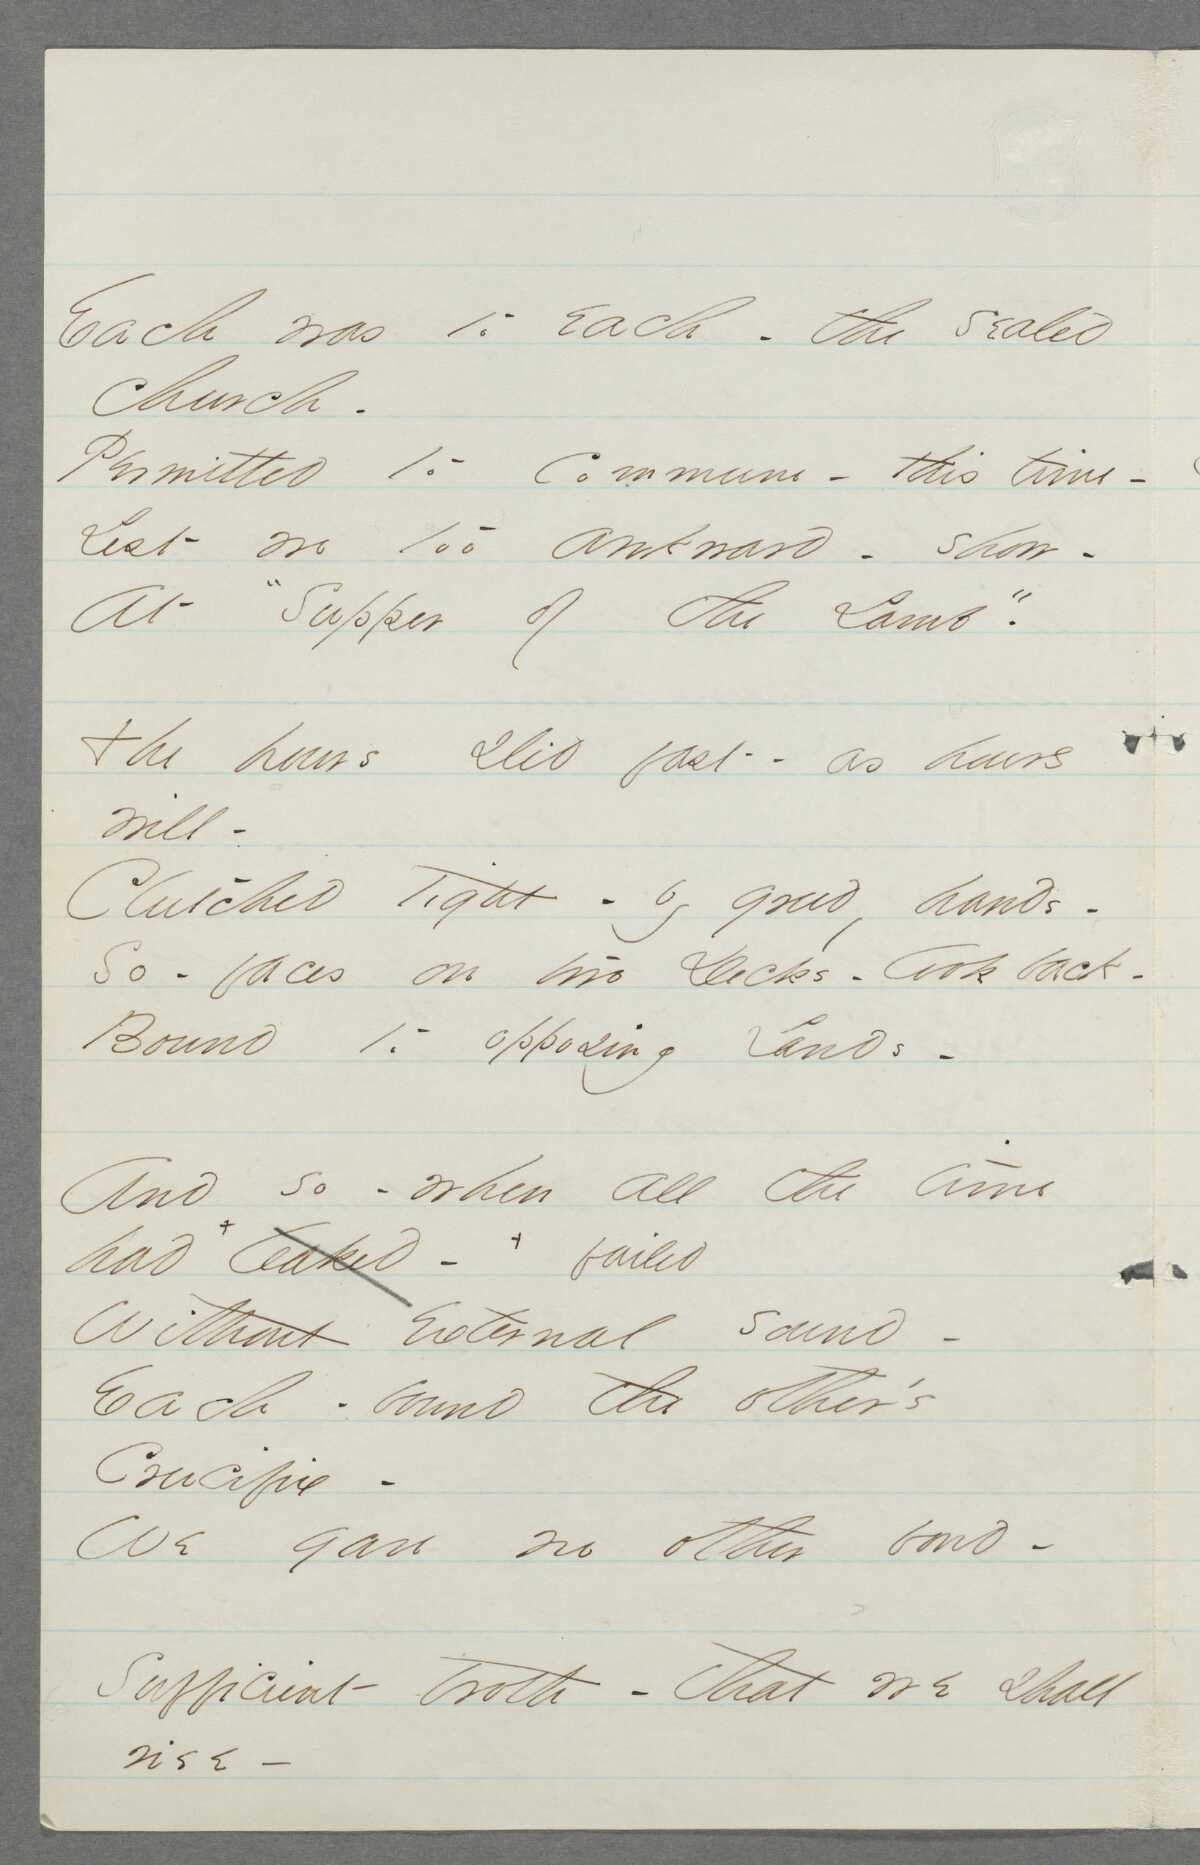 Each was to each - the sealed
church -
Permitted to commune - this time -
Lest we too awkward - show -
At "Supper of the Lamb".
The hours slid fast - as hours
will -
Clutched tight - by greedy hands -
So - faces on two Decks - look back -
Bound to opposing lands -
And so - when all the time
had + leaked - + failed
Without external sound -
Each - bound the other's
Crucifix -
We gave no other bond -
Sufficient troth - that we shall
rise -